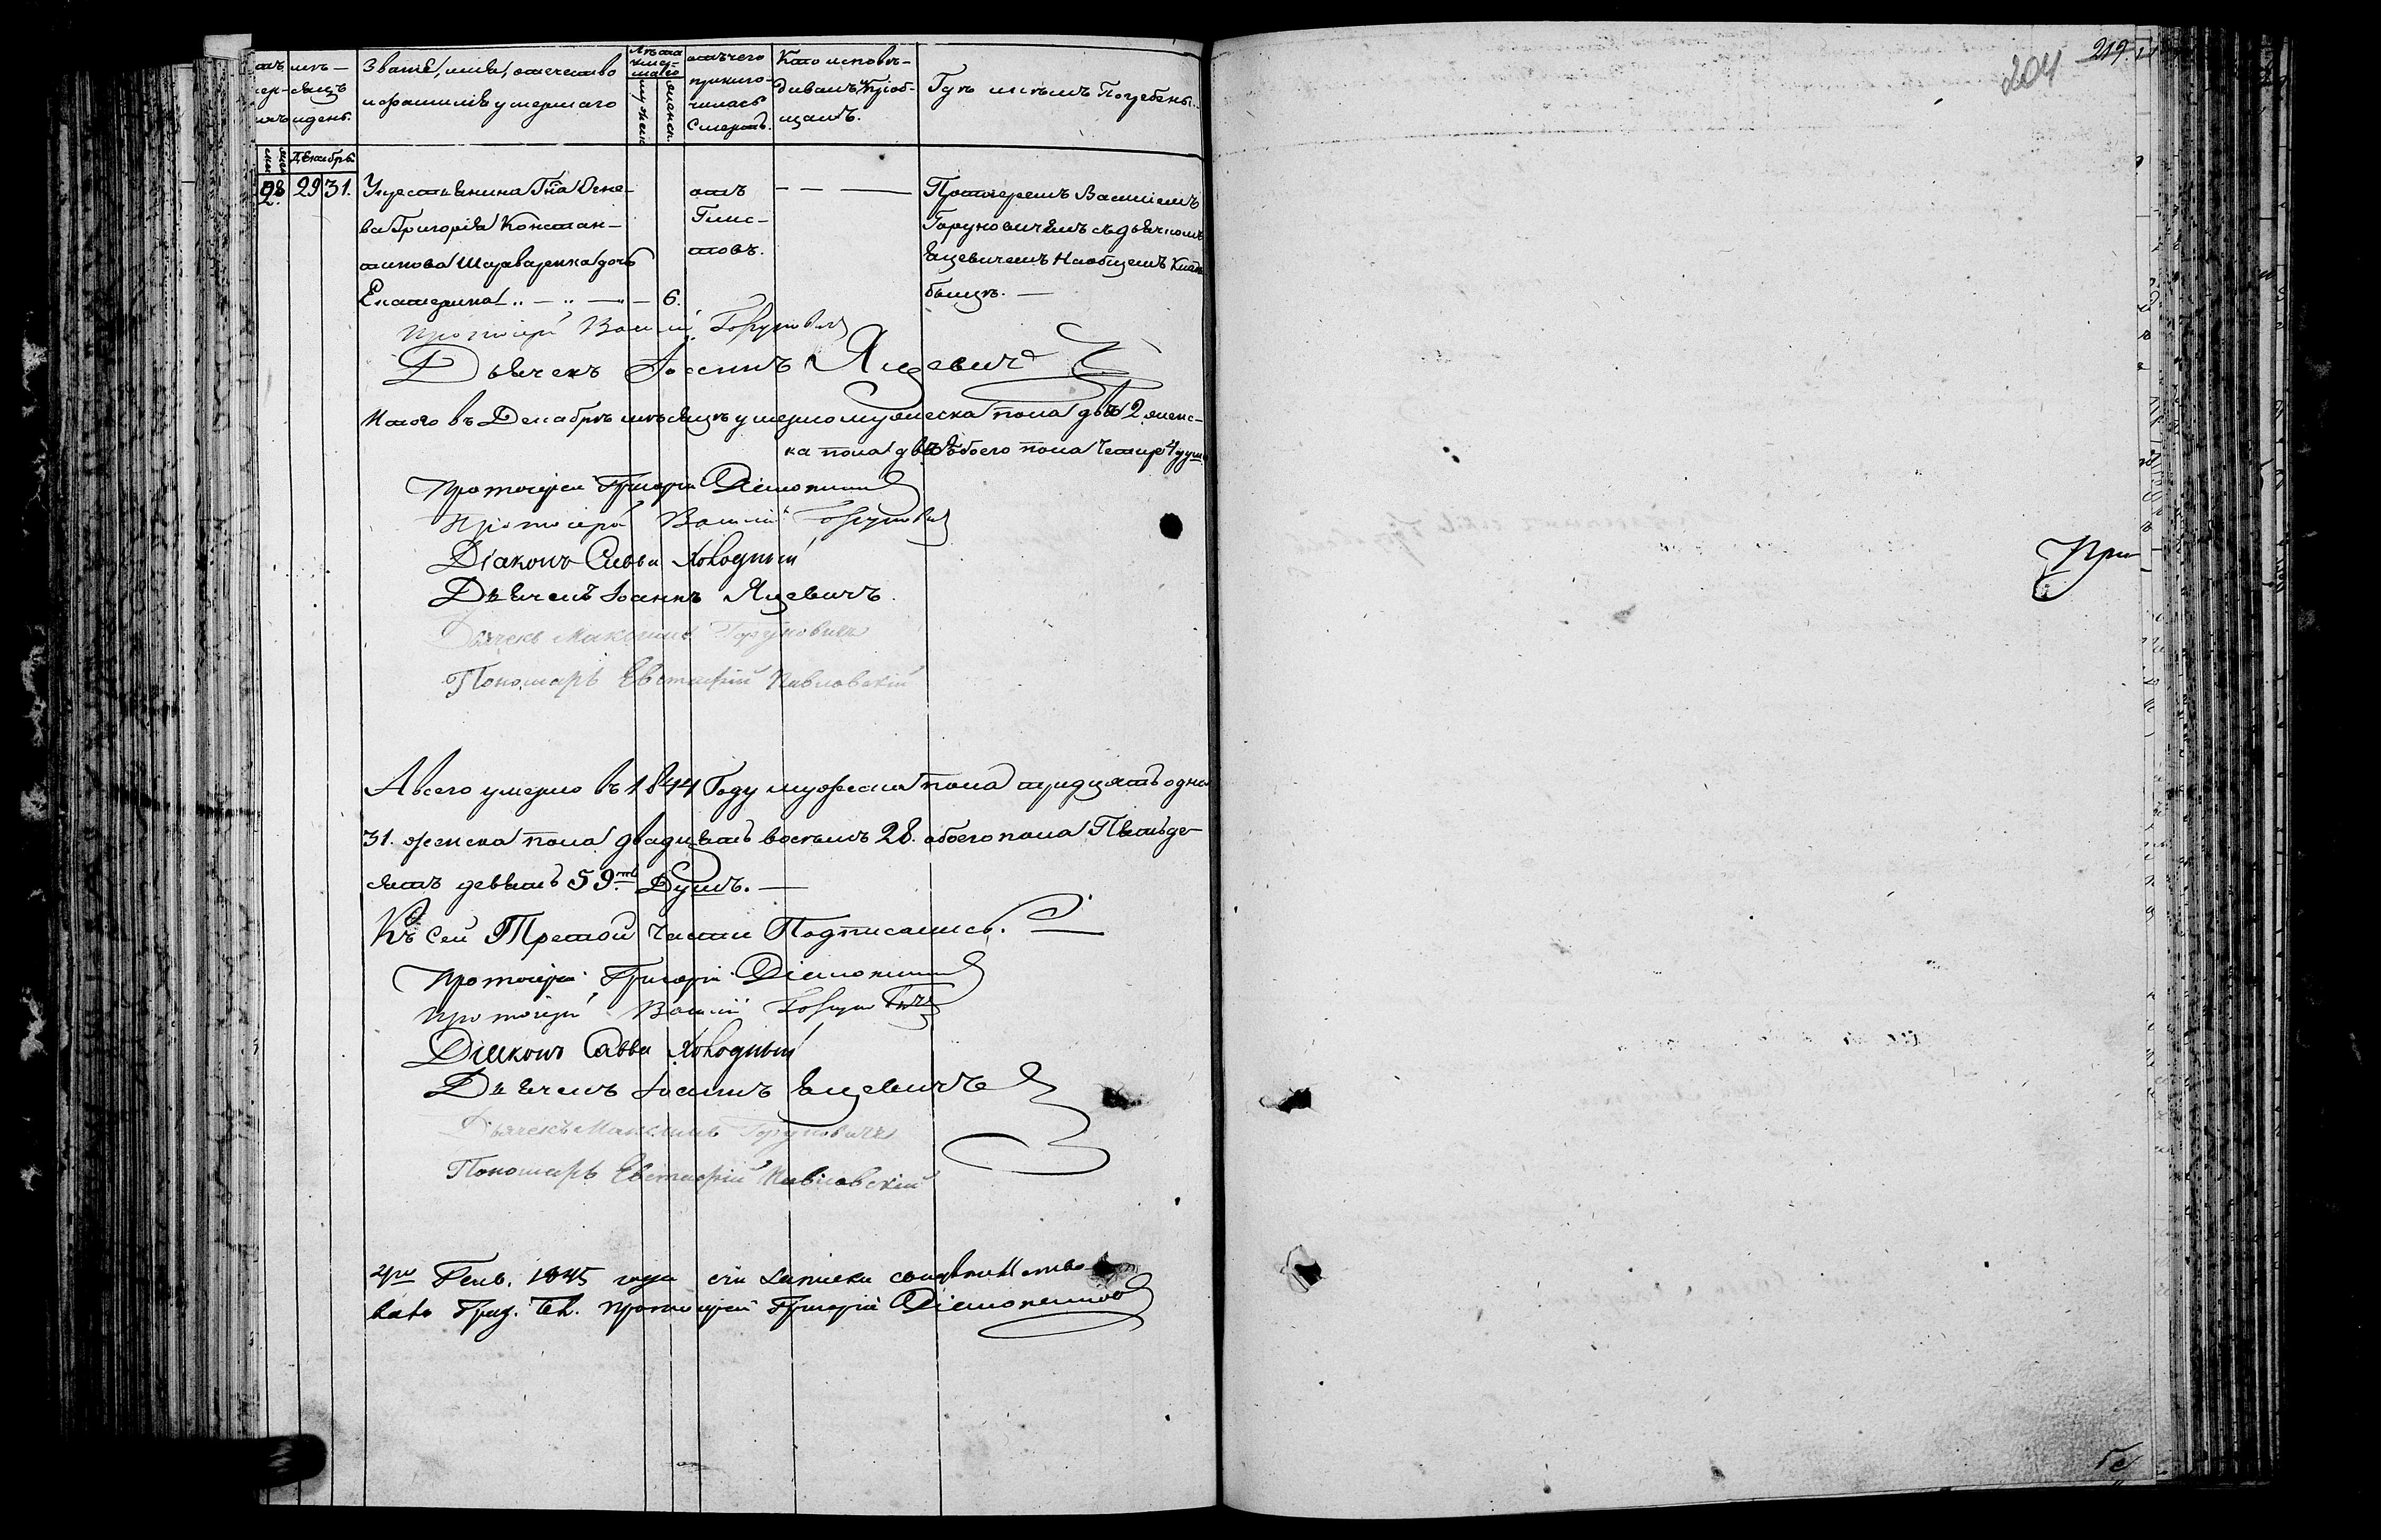 Званіе, имя, отечество
и фамилія умершаго
Лѣта
умер-
шаго
мужеск
женск.
отъ чего
приклю-
чилась
Смерть.
Кто исповѣ-
дивалъ и пріоб-
щалъ.
Гдѣ и кѣмъ Погребены.
мѣ-
сяцъ
и день.
Декабрь
28 29 31.
Григорія Констан-
тинова дочь
Екатерина 6.
отъ
Глис-
товъ.
Протоіереемъ Василіемъ
Горуновичемъ съ дьячкомъ
Яцевичемъ на общемъ Клад-
бищѣ.
Протоіерей Василій Горуновичъ
Дьячекъ Іоаннъ Яцевичъ
Итого въ Декабрѣ мѣсяцѣ умерло мужеска пола два 2 женс-
ка пола двѣ 2 обоего пола четыре 4 души
Протоіерей Григорій
Протоіерей Василій Горуновичъ
Діаконъ Савва Холодный
Дьячекъ Іоаннъ Яцевичъ.
Дьячекъ Максимъ Горуновичъ
Пономарь Евстафій Павловскій
А всего умерло въ 1844 Году мужеска пола тридцать одна
31. женска пола двадцать восемь 28. обоего пола Пятьде-
сятъ девять 59.ть Душъ.
Къ сей Третой части Подписались.
Протоіерей Григорій
Протоіерей Василій Горуновичъ
Діаконъ Савва Холодный
Дьячекъ Іоаннъ Яцевичъ
Дьячекъ Максимъ Горуновичъ
Пономарь Евстафій Павловскій
Генв. 1845 года сіи записки свидѣтельство-
валъ протоіерей Григорій
204
219.
При